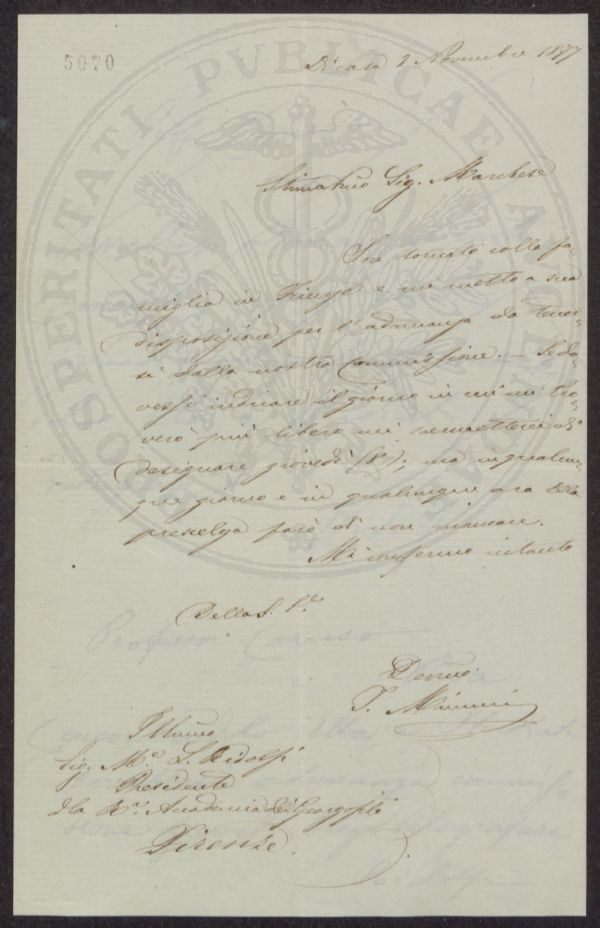 5070
Di casa 2 Novembre 1877
Stimatmo Sig. Marchese
Son tornato colla fa-
miglia in Firenze e mi metto a sua
disposizione per l'adunanza da tener-
si dalla nostra Commissione. – Se do-
vessi indicare il giorno in cui mi tro-
verò più libero mi permetterei di
designare giovedì (8); ma in qualun-
que giorno e in qualunque ora Ella
prescelga farò di non mancare.
Mi confermo intanto
Della S. Va
Devmo
Illmo
Sig. Me L. Ridolfi
Presidente
della Re Accademia dei Georgofili
Firenze.
PROSPERITATI PVBLICAE AVGENDAE
Professor Caruso
Ridolfi